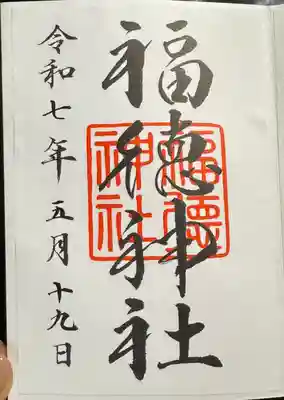 福徳神社
福德
神社
令和七年五月十九日